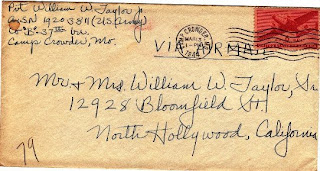 Pvt William W. Taylor Jr
ASN 19203811 (US Army)
Co "B" 37th Bn.
Camp Crowder, Mo.
CAMP CROWDER
MAR
1944
VIA AIR MAIL
Mr & Mrs. William W. Taylor, Sr.
12928 Bloomfield St
North Hollywood, California
79